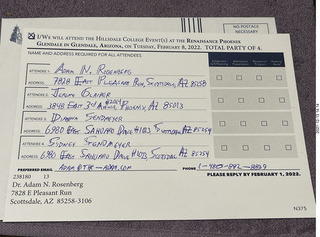 NO POSTAGE
NECESSARY
I/WE WILL ATTEND THE HILLSDALE COLLEGE EVENT(S) AT THE RENAISSANCE PHOENIX
GLENDALE IN GLENDALE, ARIZONA, ON TUESDAY, FEBRUARY 8, 2022. TOTAL PARTY OF 4.
NAME AND ADDRESS REQUIRED FOR ALL ATTENDEES.
ATTENDEE 1 ADAM N. ROSENBERG
7828 EAST PLEASANT RUN, SCOTTSDALE, AZ 85258
ATTENDEE 2
3848 EAST 3RD PHOENIX, AZ 85013
ATTENDEE 3 DIANNA SENDMEYER
6980 EAST SAHUARO DRIVE SCOTTSDALE, AZ 85254
ATTENDEE 4 SYDNEY SENDMEYER
6980 EAST SAHUARO DRIVE SCOTTSDALE, AZ 85254
PREFERRED PHONE
PLEASE REPLY BY FEBRUARY 1, 2022.
238180 13
Dr. Adam N. Rosenberg
7828 E Pleasant Run
Scottsdale, AZ 85258-3106
N375